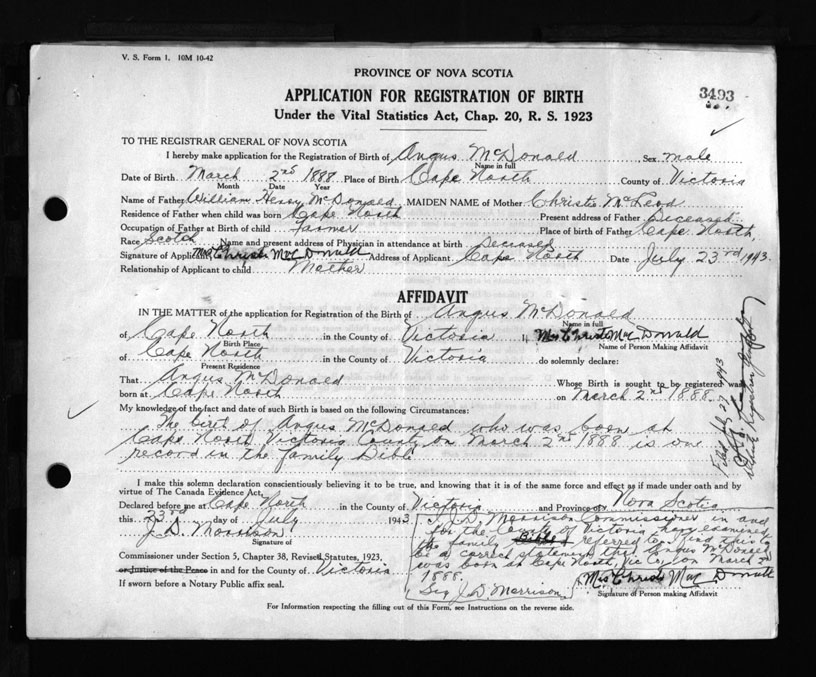 V. S. Form 1. 10M 10-42
PROVINCE OF NOVA SCOTIA
3493
APPLICATION FOR REGISTRATION OF BIRTH
Under the Vital Statistics Act, Chap. 20, R. S. 1923
TO THE REGISTRAR GENERAL OF NOVA SCOTIA
I hereby make application for the Registration of Birth of Angus McDonald Sex male
Name in full
Date of Birth March 2nd 1888 Place of Birth Cape North County of Victoria
Month Date Year
Name of Father William Henry McDonald MAIDEN NAME of Mother Christe McLeod
Residence of Father when child was born Cape North Present address of Father Diceased
Occupation of Father at Birth of child Farmer Place of birth of Father Cape North,
Race Scotch Name and present address of Physician in attendance at birth Deceased
Signature of Applicant Mrs Christe McDonald Address of Applicant Cape North Date July 23rd 1943.
Relationship of Applicant to child Mother
AFFIDAVIT
IN THE MATTER of the application for Registration of the Birth of Angus McDonald
Name in full
of Cape North in the County of Victoria I, Mrs Christe Mac Donald
Birth Place Name of Person Making Affidavit
of Cape North in the County of Victoria do solemnly declare:
Present Residence
That Angus McDonald Whose Birth is sought to be registered was
born at Cape North on March 2nd 1888.
My knowledge of the fact and date of such Birth is based on the following Circumstances:
The birt of Angus McDonald who was born at
Cape North Victoria County on March 2nd 1888 is one
record in the family Bible
I make this solemn declaration conscientiously believing it to be true, and knowing that it is of the same force and effect as if made under oath and by
virtue of The Canada Evidence Act,
Declared before me at Cape North in the County of Victoria and Province of Nova Scotia
this 23rd day of July 1943
J. D. Morrison
Signature of
Commissioner under Section 5, Chapter 38, Revised Statutes, 1923,
or Justice of the Peace in and for the County of Victoria
If sworn before a Notary Public affix seal.
I J. D. Morrison Commissioner in and
for the County of Victoria have examined
the family Bible referred to find this to
be a correct statement that Angus McDonald
was born at Cape North, Vic Co, on March 2nd
1888.
Sig J. D. Morrison
Mrs Christe Mac Donald
Signature of Person making Affidavit
For Information respecting the filling out of this Form, see Instructions on the reverse side.